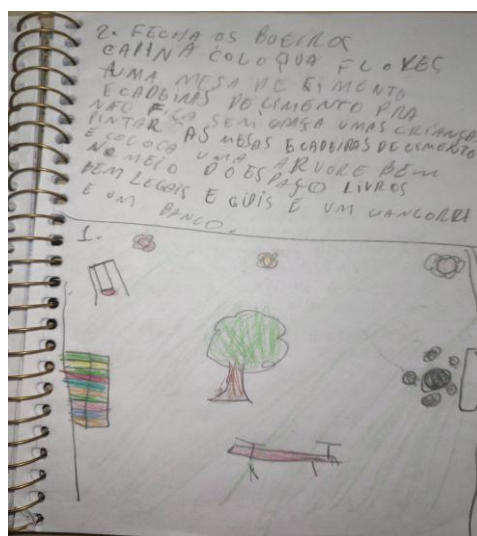 2. FECHA OS BUEIROS
CAPINA COLOQUA FLORES
UMA MESA DE CIMENTO
E CADEIRAS DE CIMENTO PRA
NÃO FICA SEM GRAÇA UMAS CRIANÇAS
PINTAR AS MESAS E CADEIRAS DE CIMENTO
E COLOCA UMA ARVORE BEM
NO MEIO DO ESPAÇO LIVROS
BEM LEGAIS E GIBIS E UM
E UM BANCO.
1.